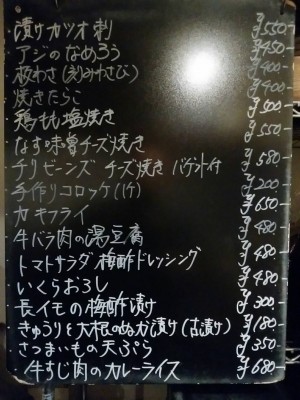 漬けカツオ刺 ¥550-
アジのなめろう ¥450-
板わさ(刻みわさび) ¥400-
焼きたらこ ¥400-
鶏もも塩焼き ¥500-
なす味噌チーズ焼き ¥550-
チリビーンズ チーズ焼き バゲット付 ¥580-
手作りコロッケ(1ケ) ¥200-
カキフライ ¥650-
牛バラ肉の湯豆腐 ¥480-
トマトサラダ梅酢ドレッシング ¥480-
いくらおろし ¥480-
長イモの梅酢漬け ¥300-
きゅうりと大根のぬか漬け(古漬け) ¥180-
さつまいもの天ぷら ¥350-
牛すじ肉のカレーライス ¥680-